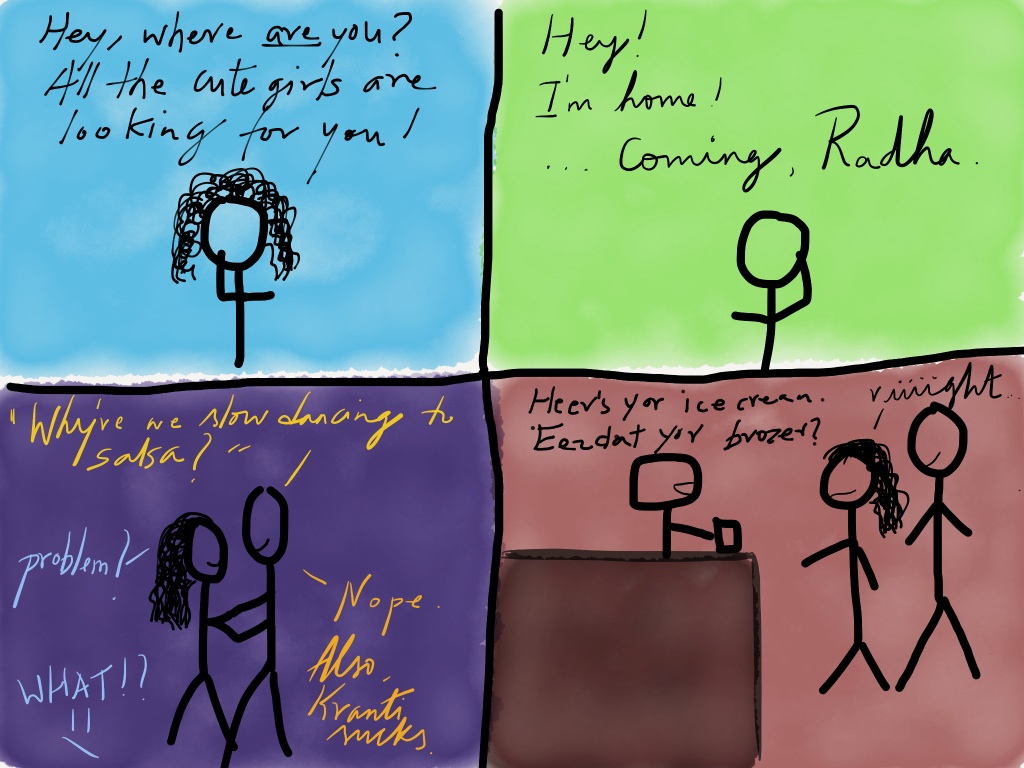 Hey, where are you?
All the cute girls are
looking for you!
Hey!
I'm home!
... Coming, Radha.
"Why're we slow dancing to
salsa?"
problem?
Nope.
WHAT!?
Also,
Kranti
sucks.
Heer's yor ice crean.
Eezdat yor brozer?
riiiight...